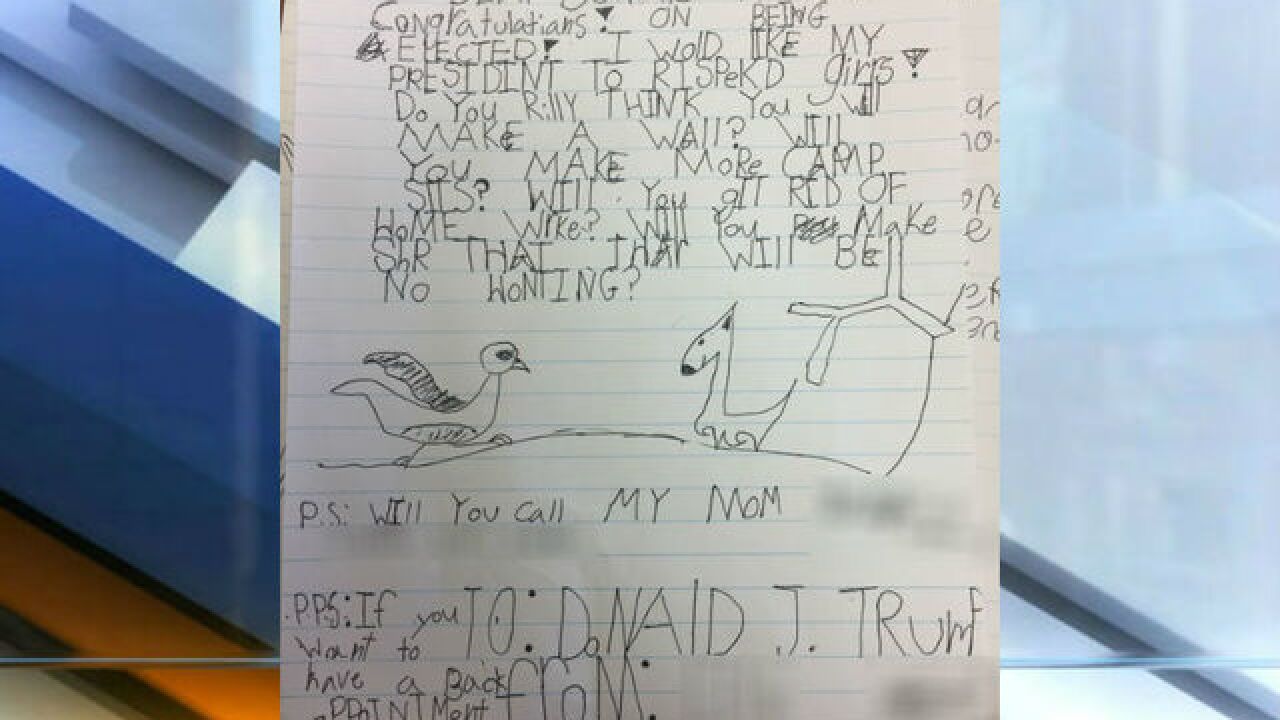 Congratulations! ON BEING
ELECTED! I WOlD lIKE MY
PRESIDINT To RISPeKD girls!
Do You RillY THINK You Will
MAKE A WAll? WIll
You MAKE MoRe CAMP
SItS? WIll You gIT RID OF
HoME WrKe? Will You Make
ShR THAT THAT WIll BE
No HONTING?
P.S: WIll You Call MY MoM
PPS: If you
Want to
have a Back
APPOINTMent
TO: DoNAlD J. TRumP
fRoM: